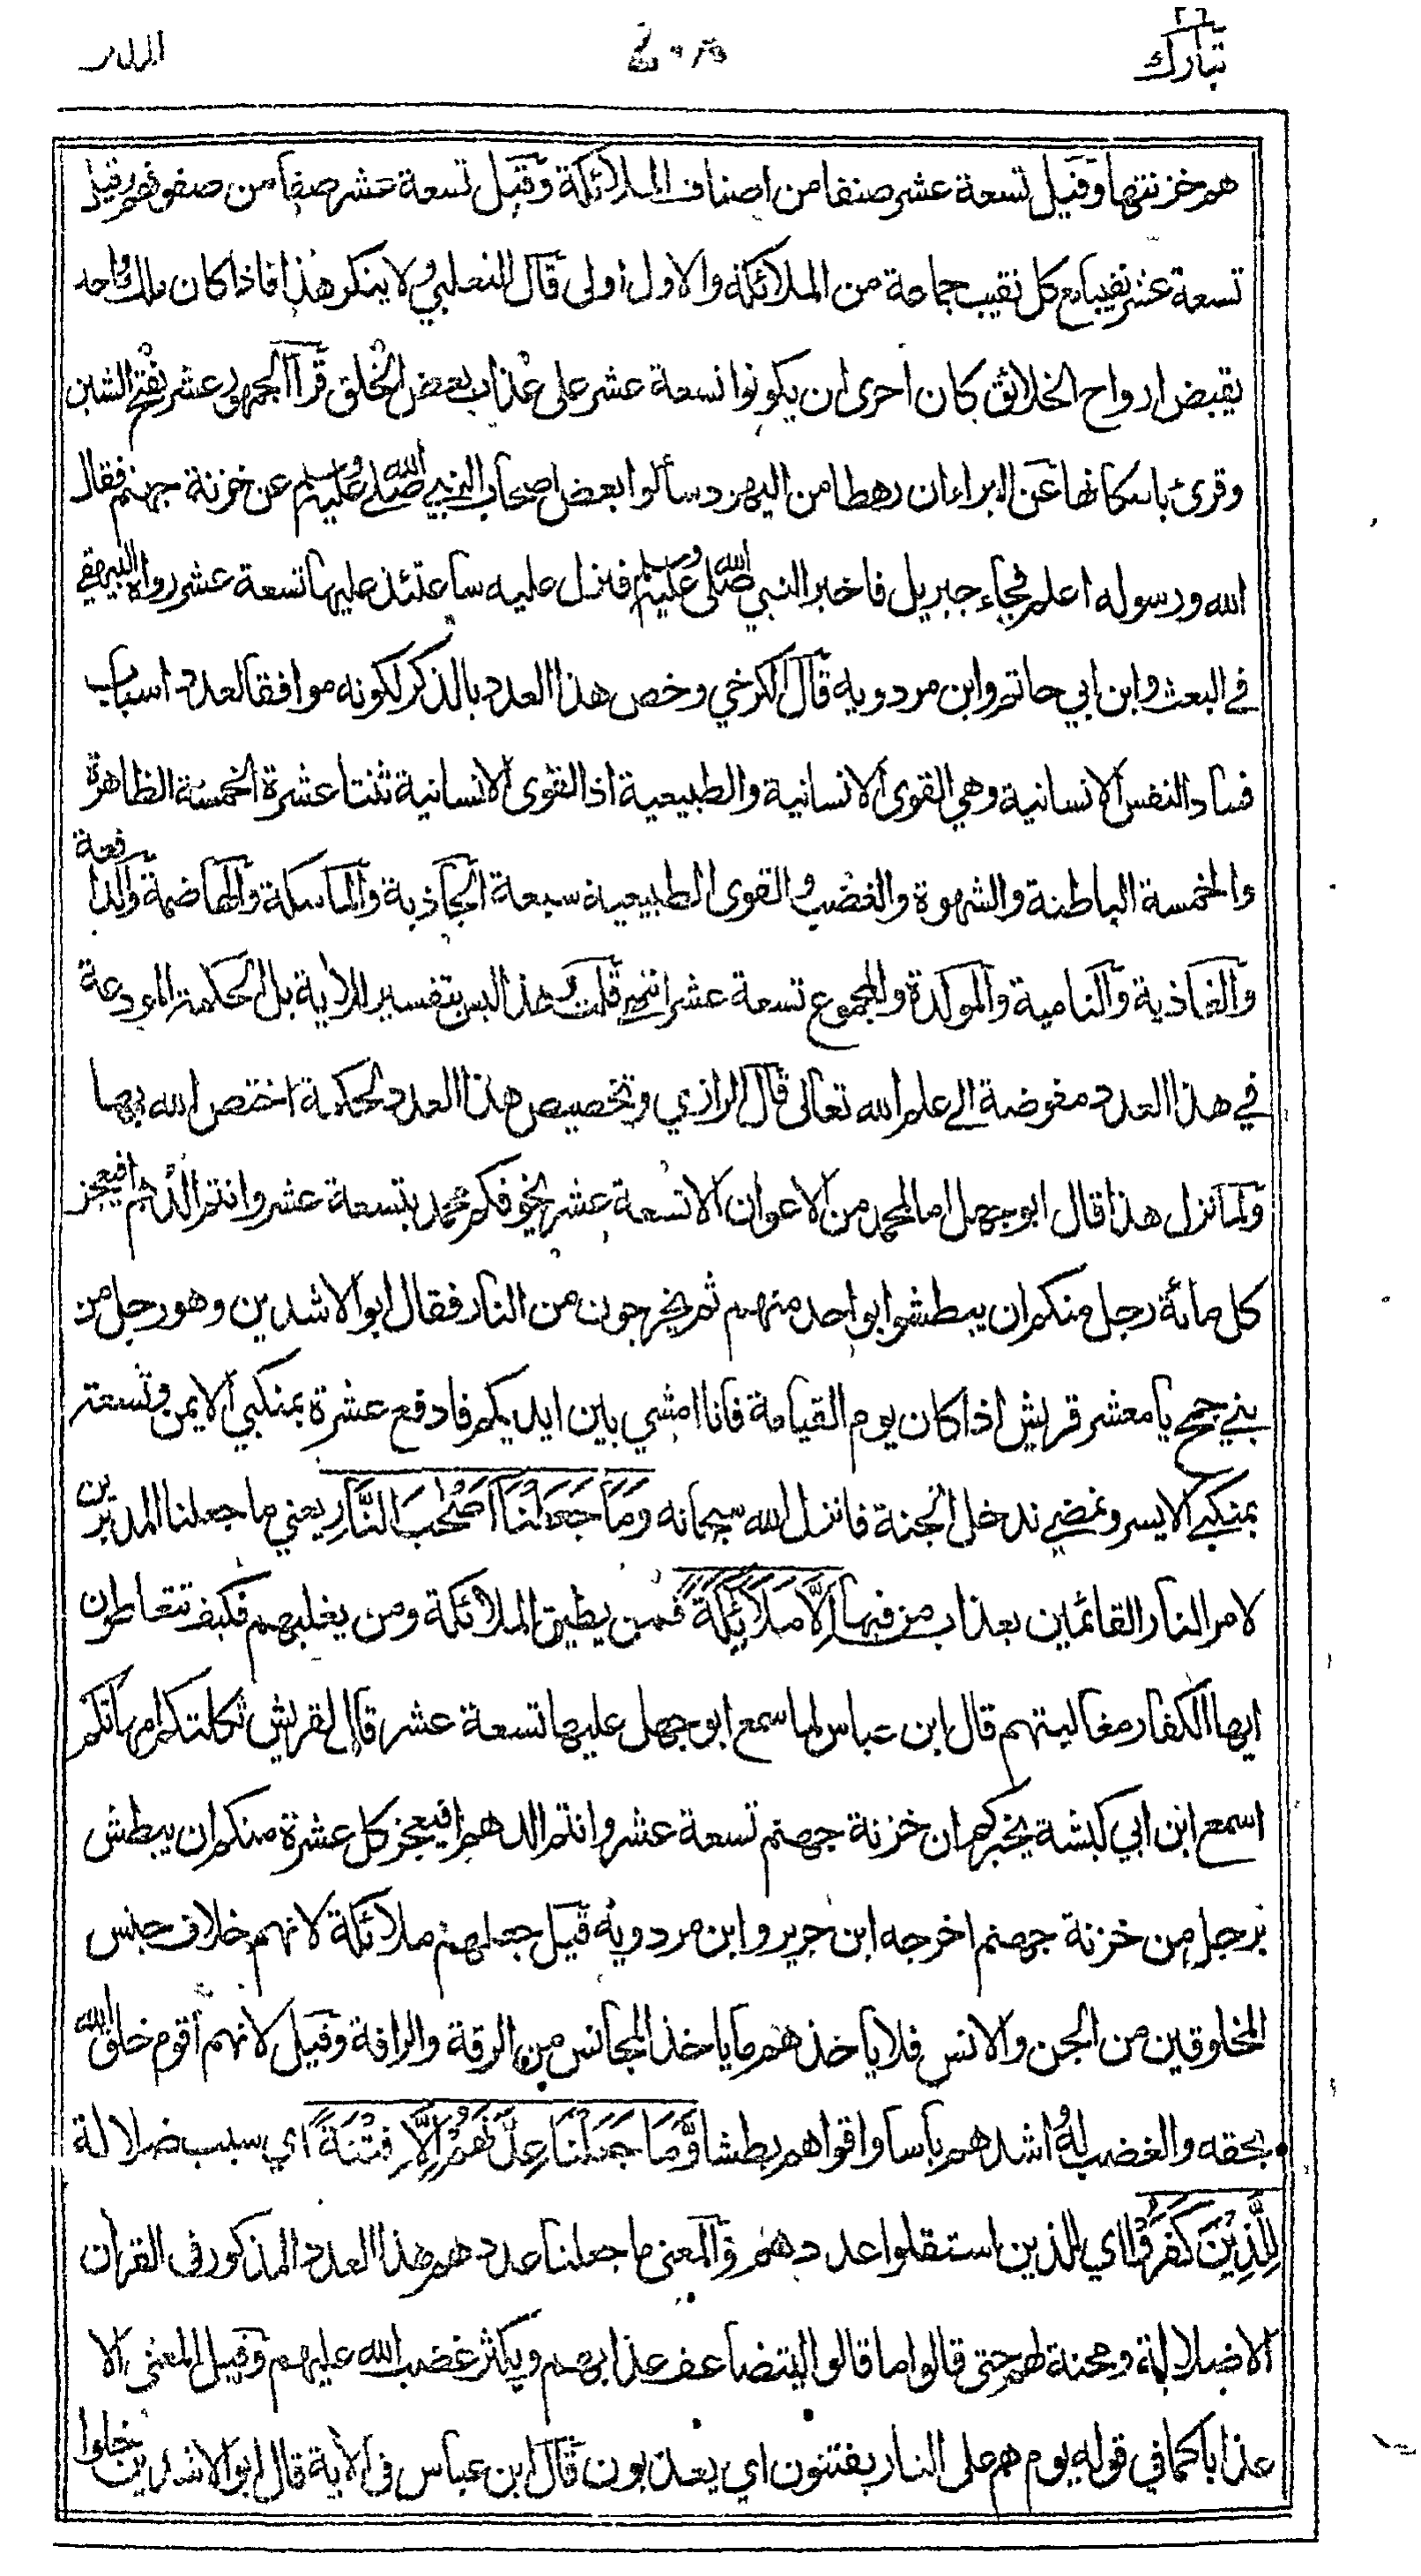 تبارك ٢٩
المدثر
هم خزنتها وقيل تسعة عشر صنفا من اصناف الملائكة وقيل تسعة عشر صفا من صفوفهم وقيل
تسعة عشر نقيبا مع كل نقيب جماعة من الملائكة والاول اولى قال الثعلبي ولا ينكر هذا فاذا كان ملك واحد
يقبض ارواح الخلائق كان احرى ان يكونوا تسعة عشر على عذاب بعض الخلق قرأ الجمهور عشر بفتح الشين
وقرئ باسكانها عن البراء ان رهطا من اليهود سألوا بعض اصحاب النبي صلى الله عليه وسلم عن خزنة جهنم فقال
الله ورسوله اعلم فجاء جبريل فاخبر النبي صلى الله عليه وسلم فنزل عليه ساعتئذ عليها تسعة عشر رواه البيهقي
في البعث وابن ابي حاتم وابن مردويه قال الكرخي وخص هذا العدد بالذكر لكونه موافقا لعدد اسباب
فساد النفس الانسانية وهي القوى الانسانية والطبيعية اذ القوى الانسانية ثنتا عشرة الخمسة الظاهرة
والخمسة الباطنة والشهوة والغضب والقوى الطبيعية سبعة الجاذبة والماسكة والهاضمة والدافعة
والغاذية والنامية والمولدة والمجموع تسعة عشر انتهى قلت هذا ليس بتفسير للاية بل الحكمة المودعة
في هذا العدد مفوضة الى علم الله تعالى قال الرازي وتخصيص هذا العدد لحكمة اختص الله بها
ولما نزل هذا قال ابو جهل اما لمحمد من الاعوان الا تسعة عشر يخوفكم محمد بتسعة عشر وانتم الدهم افيعجز
كل مائة رجل منكم ان يبطشوا بواحد منهم ثم يخرجون من النار فقال ابو الاشدين وهو رجل من
بني جمح يا معشر قريش اذا كان يوم القيامة فانا امشي بين ايديكم فادفع عشرة بمنكبي الايمن وتسعة
بمنكبي الايسر ونمضي ندخل الجنة فانزل الله سبحانه وَمَا جَعَلْنَا أَصْحٰبَ النَّارِ يعني ما جعلنا المدبرين
لامر النار القائمين بعذاب من فيها إِلَّا مَلَائِكَةً فمن يطيق الملائكة ومن يغلبهم فكيف تتعاطون
ايها الكفار مغالبتهم قال ابن عباس لما سمع ابو جهل عليها تسعة عشر قال لقريش ثكلتكم امهاتكم
اسمع ابن ابي كبشة يخبركم ان خزنة جهنم تسعة عشر وانتم الدهم افيعجز كل عشرة منكم ان يبطش
برجل من خزنة جهنم اخرجه ابن جرير وابن مردويه قيل جعلهم ملائكة لانهم خلاف جنس
المخلوقين من الجن والانس فلا ياخذهم ما ياخذ المجانس من الرقة والرافة وقيل لانهم اقوم خلق الله
بحقه والغضب له واشدهم بأسا واقواهم بطشا وَّمَا جَعَلْنَا عِدَّتَهُمْ إِلَّا فِتْنَةً اي سبب ضلالة
لِلَّذِيْنَ كَفَرُوْا اي للذين استقلوا عددهم والمعنى ما جعلنا عددهم هذا العدد المذكور في القرآن
الا ضلالة ومحنة لهم حتى قالوا ما قالوا ليتضاعف عذابهم ويكثر غضب الله عليهم وقيل المعنى الا
عذابا كما في قوله يوم هم على النار يفتنون اي يعذبون قال ابن عباس في الاية قال ابو الاشدين خلوا